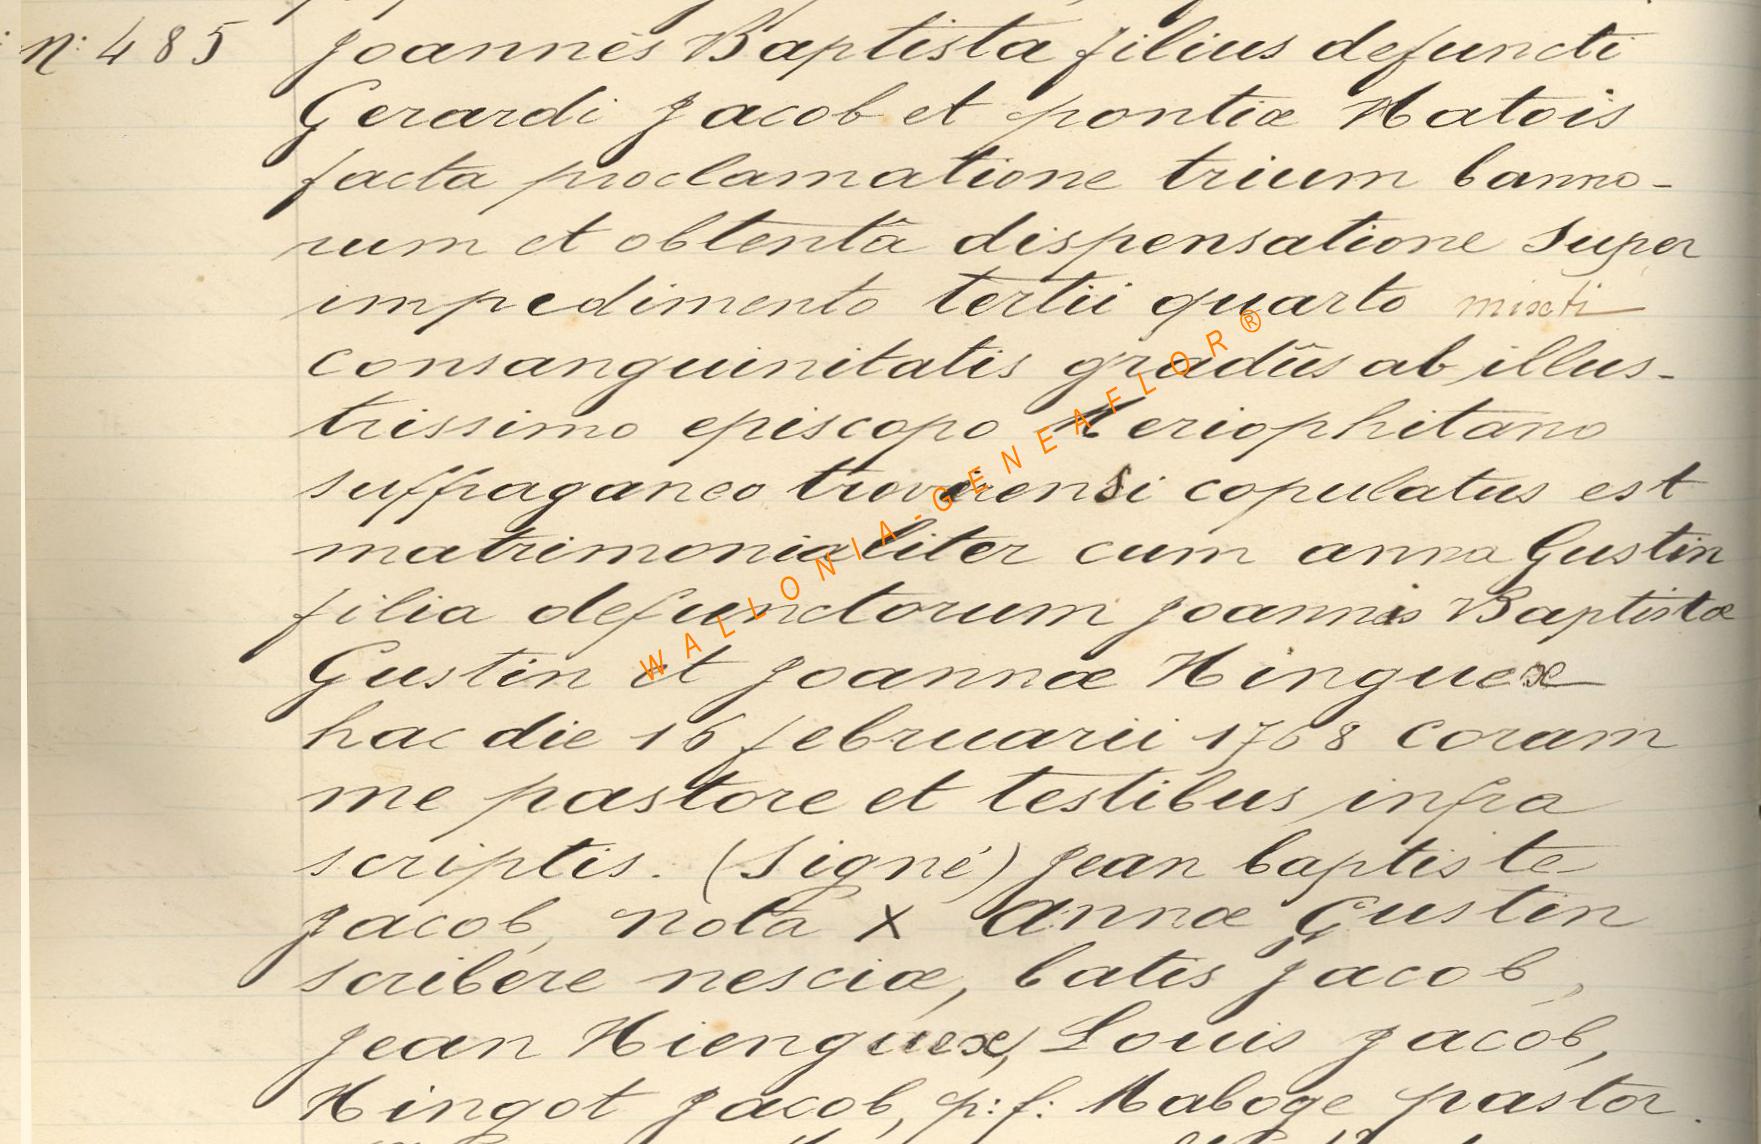 n: 485 Joannes Baptista filius defuncti
Gerardi Jacob et pontiæ Hatois
facta proclamatione trium banno-
rum et obtentâ dispensatione super
impedimento tertii quarto mixti
consanguinitatis gradûs ab illus-
trissimo episcopo Meriophitano
suffraganeo trevirensi copulatus est
matrimonialiter cum anna Gustin
filia defunctorum Joannis Baptistæ
Gustin et Joannæ Hinguex
hac die 16 februarii 1768 coram
me pastore et testibus infra
scriptis. (Signé) Jean baptiste
Jacob, nota X Annæ Gustin
scribere nesciæ, batis Jacob,
Jean Hienguex, Louis Jacob,
Hingot Jacob, p: f: Maboge pastor.
WALLONIA-GENEAFLOR®